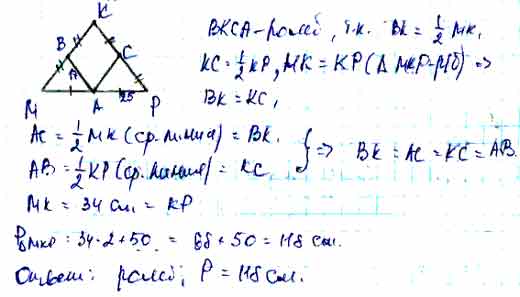 K
B
C
A
M
A
25
P
BKCA – ромб, т.к. BK = 1/2 MK,
KC = 1/2 KP, MK = KP (Δ MKP – р/б) =>
BK = KC,
AC = 1/2 MK (ср. линия) = BK.
AB = 1/2 KP (ср. линия) = KC
} => BK = AC = KC = AB.
MK = 34 см = KP
P MKP = 34·2 + 50 = 68 + 50 = 118 см.
Ответ: ромб; P = 118 см.